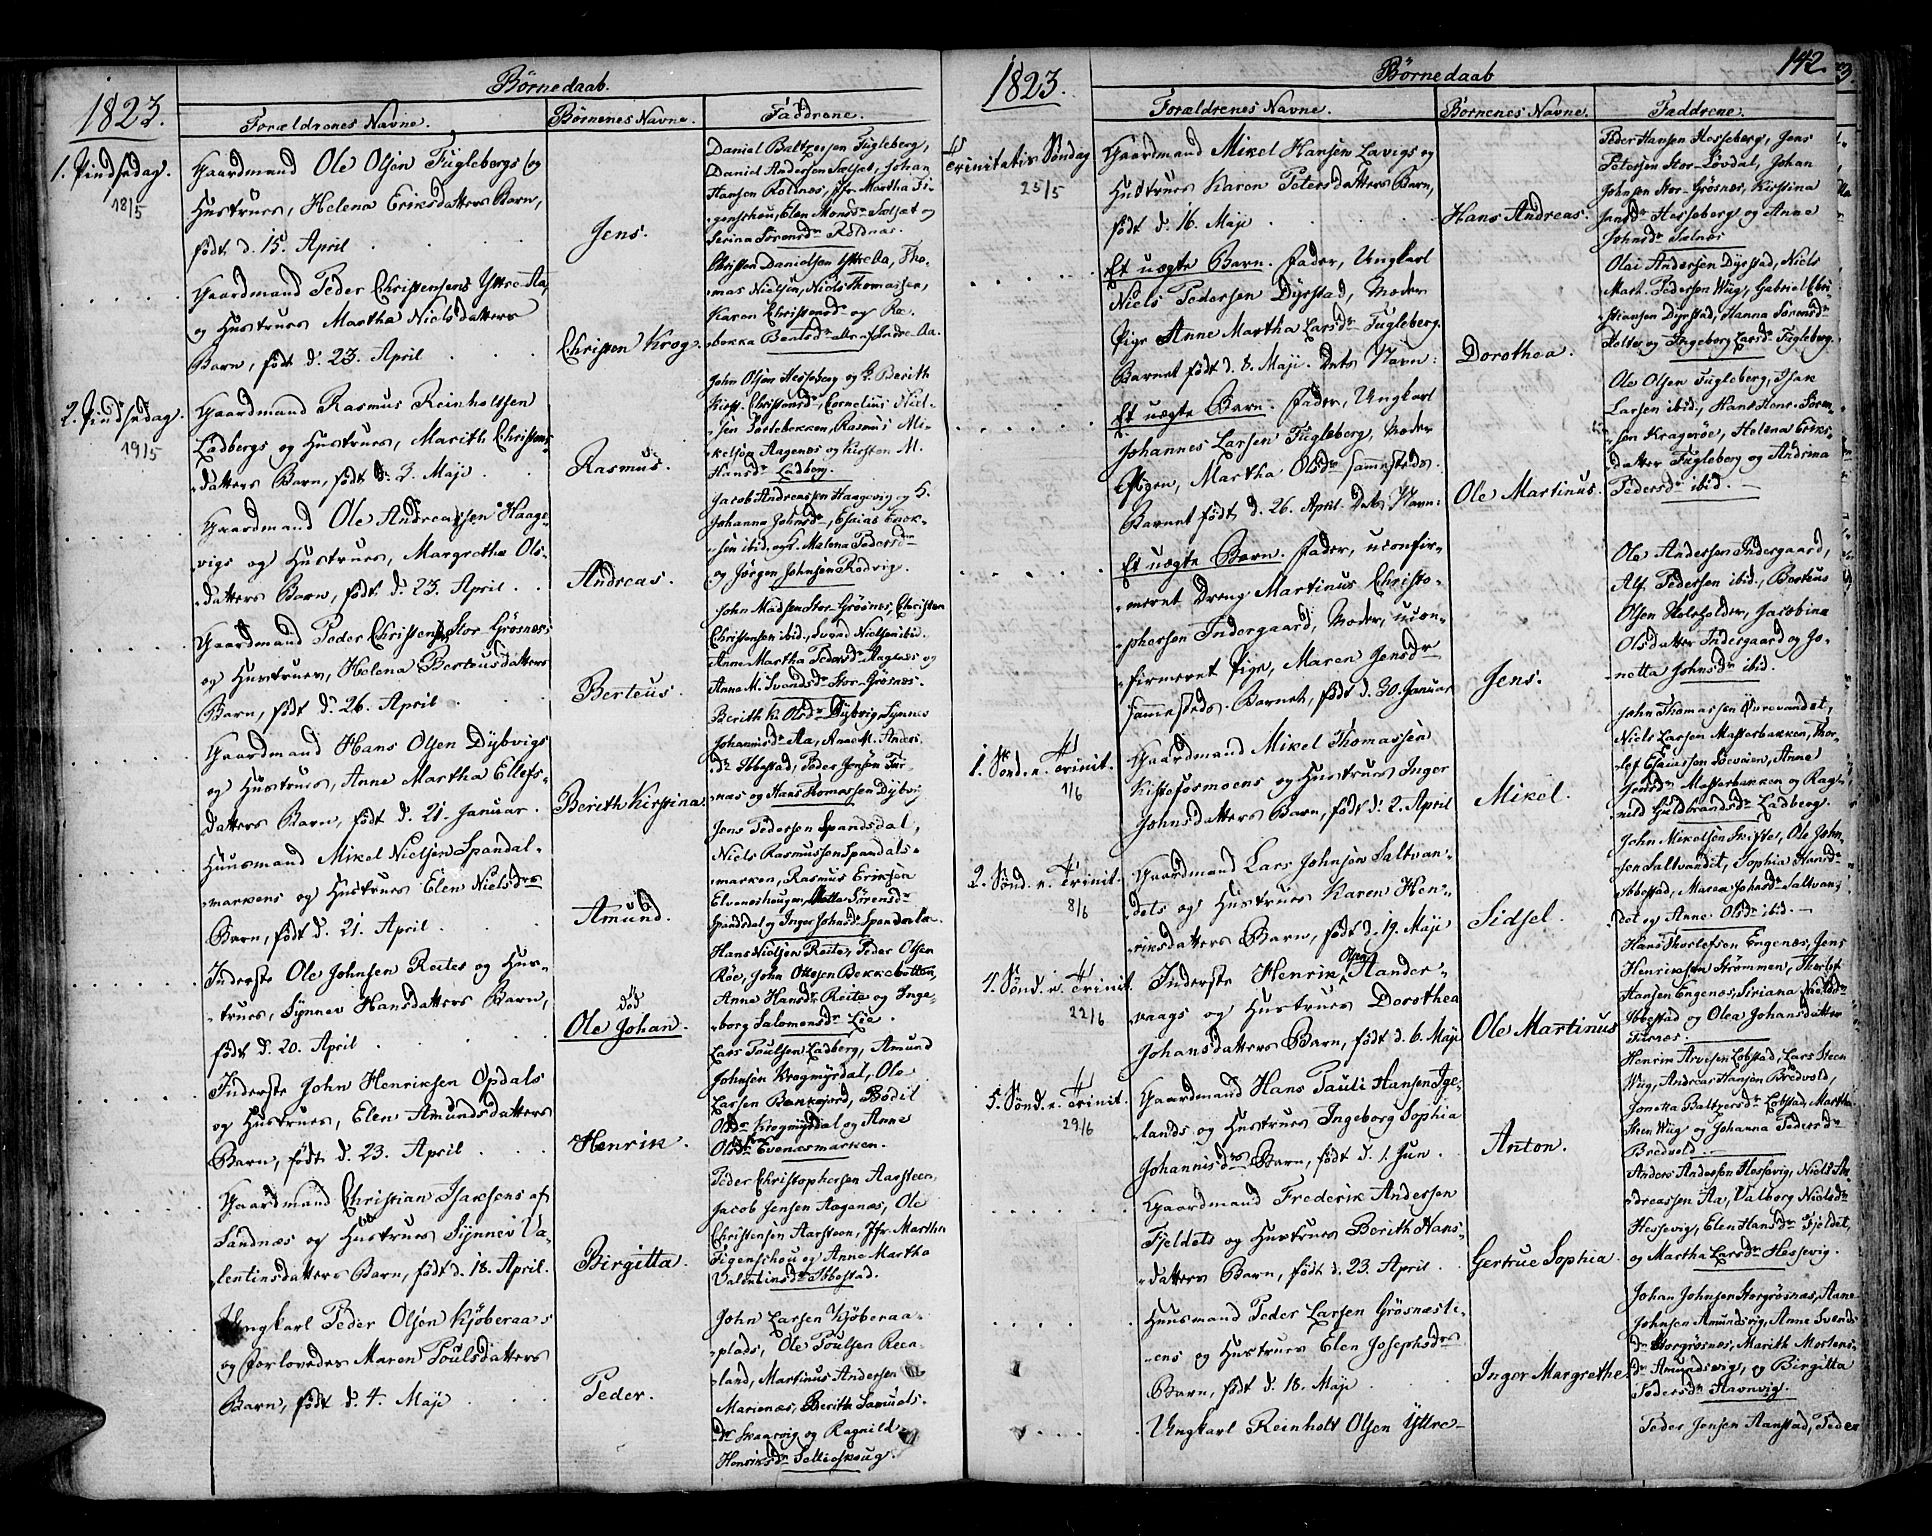 1823.
Børnedaab.
Forældrenes Navne.
Børnenes Navne.
Faddrene.
1. Pindsedag.
18/5
Gaardmand Ole Olsen Fuglebergs og
Hustrues, Helena Eriksdatters Barn,
født d. 15. April
Jens.
Daniel Baltzersen Fugleberg,
Daniel Andersen Sælsæt, Johan
Hansen Rolnæs, Jfr. Martha Fi-
genschou, Elen Monsdr Sælsæt og
Serina Sørensdr Rolnæs.
Gaardmand Peder Christensens Yttre-Aa,
og Hustrues Martha Nielsdatters
Barn, født d. 23. April
Christen Krog.
Christen Danielsen Yttre Aa, Tho-
mas Nielsen, Niels Thomassen,
Karen Christensdr og Re-
bekka Bentsdr Alle af Indre Aa.
2. Pindsedag.
19/5
Gaardmand Rasmus Reinholtsen
Ladbergs og Hustrues, Marith Christens-
datters Barn, født d. 3. Maji
Rasmus.
John Olsen Hesseberg og H. Berith
Kirst. Christensdr, Cornelius Niel-
sen Sortebekken, Rasmus Mi-
kelsen Aagenæs og Kirsten M.
Hansdr Ladberg.
Gaardmand Ole Andreassen Haage-
vigs og Hustrues, Margrethe Ols-
datters Barn, født d. 23. April
Andreas.
Jacob Andreassen Haagevig og H.
Johanna Johnsdr, Esaias Enok-
sen ibid. og H. Malena Pedersdr
og Jørgen Johnsen Rødvig.
Gaardmand Peder Christens. Stor Grøsnes:
og Hustrues, Helena Berteusdatters
Barn, født d. 26. April
Berteus.
John Madsen Stor-Grøsnes, Christen
Christensen ibid., Svend Nielsen ibid.
Anne Martha Pedersdr Aagnæs og
Anne M. Svendsdr Stor-Grøsnes.
Gaardmand Hans Olsen Dybvigs
og Hustrues, Anne Martha Ellefs-
datters Barn, født d. 21. Januar
Berith Kirstina
Berith K. Olsdr Dybvig, Synnev
Johannisdr Aa, Anne M. Anders
dr Ibbestad, Peder Jensen Fur-
nes og Hans Thomassen Dybvig
Huusmand Mikel Nielsen Spandal-
markens og Hustrues Elen Nielsdrs
Barn, født d. 21. April
Amund.
Jens Pedersen Spandsdal,
Niels Rasmussen Spandals-
marken, Rasmus Eriksen
Elveneshougen, Mette Sørensdr
Spandsdal og Inger Johnsdr Spandal.
Inderste Ole Johnsen Reites og Hus-
trues, Synnev Hansdatters Barn,
født d. 20. April
død
Ole Johan.
Hans Nielsen Reite, Peder Olsen
Røe, John Ottesen Bekkebotten,
Anne Hansdr Reite og Inge-
borg Salomonsdr Lie.
Inderste John Henriksen Opdals
og Hustrues, Elen Amundsdatters
Barn, født d. 23. April
Henrik.
Lars Poulsen Ladberg, Amund
Johnsen Krogmyrdal, Ole
Larsen Renkejord, Bodil
Olsdr Krogmyrdal og Anne
Olsdr Evenæsmarken.
Gaardmand Christian Isaksens af
Sandnæs og Hustrues Synnev Va-
lentinsdatters Barn, født d. 18. April.
Birgitta.
Peder Christophersen Aarsteen,
Jacob Jensen Aagenæs, Ole
Christensen Aarsteen, Jfr. Martha
Figenschou og Anne Martha
Valentinsdr Ibbestad.
Ungkarl Peder Olsen Kjøberaas
og Forlovedes Maren Poulsdatters
Barn, født d. 4. Maji
Peder.
John Larsen Kjøberaa-
plads, Ole Poulsen Reen-
land, Martinus Andersen
Marienæs, Berith Samuels-
dr Skaarvig og Ragnild
Henriksdr Sellieskoug.
1823.
Børnedaab
142.
Forældrenes Navne.
Børnenes Navne.
Faddrene.
Trinitatis Søndag
25/5
Gaardmand Mikel Hansen Lavigs og
Hustrues Karen Petersdatters Barn,
født d. 16. Maji
Hans Andreas.
Peder Hansen Hesseberg, Jens
Petersen Stor-Løvdal, Johan
Johnsen Stor-Grøsnæs, Kirstina
Jensdr Hesseberg og Anne
Johnsdr Sælnæs
Et uægte Barn. Fader, Ungkarl
Niels Pedersen Dyrstad, Moder
Pige Anne Martha Larsdr Fugleberg.
Barnet født d. 8. Maji. Dets Navn:
Dorothea.
Olai Andersen Dyrstad, Niels
Mart. Pedersen Wiig, Gabriel Chri-
stiansen Dyrstad, Hanna Sørensdr
og Ingeborg Larsdr Fugleberg.
Et uægte Barn. Fader, Ungkarl
Johannes Larsen Fugleberg, Moder
Pigen, Martha Olsdr sammesteds.
Barnet født d. 26. April. Dets Navn:
Ole Martinus.
Ole Olsen Fugleberg, Isak
Larsen ibid., Hans Henr. Søren-
sen Kragerøe, Helena Eriks-
datter Fugleberg og Andrina
Pedersdr ibid.
Et uægte Barn. Fader, uconfir-
meret Dreng Martinus Christo-
phersen Indergaard, Moder, ucon-
firmeret Pige, Maren Jensdr
sammesteds. Barnet, født d. 30. Januar
Jens.
Ole Andersen Indergaard,
Alf. Pedersen ibid., Berteus
Olsen Hølefolder, Jacobina
Olsdatter Indergaard og Jo-
netta Johnsdr ibid.
1. Sønd. e. Trinit.
1/6
Gaardmand Mikel Thomassen
Kistefosmoens og Hustrues Inger
Johnsdatters Barn, født d. 2. April
Mikel.
John Thomassen Øvrevandet,
Niels Larsen Masterbakken, Thor-
lef Esaiassen Lovøien, Anne
Jensdr Masterbakken og Rag-
nild Guldbrandsdr Ladberg.
2. Sønd. e. Trinit.
8/6
Gaardmand Lars Johnsen Saltvan-
dets og Hustrues Karen Hen-
riksdatters Barn, født d. 19. Maji
Sidsel.
John Mikelsen Skifte, Ole John-
sen Saltvandet, Sophia Hansdr
Ibbestad, Maren Johnsdr Saltvan-
det og Anne Olsdr ibid.
4. Sønd. e. Trinit.
22/6
Inderste Henrik Olsen Hander-
vaags og Hustrues Dorothea
Johansdatters Barn, født d. 6. Maji
Ole Martinus
Hans Thorlefsen Engenæs, Jens
Henriksen Strømmen, Thorlef
Hansen Engenæs, Siriana Nielsdr
Ibbestad og Olea Johansdatter
Furnæs.
5. Sønd. e. Trinit.
29/6
Gaardmand Hans Pauli Hansen Ige-
lands og Hustrues Ingeborg Sophia
Johannisdrs Barn, født d. 1. Jun.
Anton.
Henrik Arvesen Lobstad, Lars Steen
Wiig, Andreas Hansen Bredvold,
Jonetta Baltzersdr Lobstad, Martha
Steen Wiig og Johanna Pedersdr
Bredvold.
Gaardmand Frederik Andersen
Fjeldets og Hustrues Berith Hans-
datters Barn, født d. 23. April
Gertrue Sophia.
Anders Andersen Hessevig, Niels An-
dreassen Aa, Valborg Nielsdr
Hessevig, Elen Hansdr Fjeldet,
og Martha Larsdr Hessevig.
Huusmand Peder Larsen Grøsnæsli-
ens og Hustrues Elen Josephsdrs
Barn, født d. 18. Maji
Inger Margrethe
Johan Johnsen Storgrøsnæs, Aane
Johnsen Amundsvig, Anne Svends-
dr Storgrøsnæs, Marith Mortens-
dr Amundsvig, og Birgitta
Pedersdr Havnvig.
Ungkarl Reinholt Olsen Yttre-
Peder Jensen Aanstad, Peder